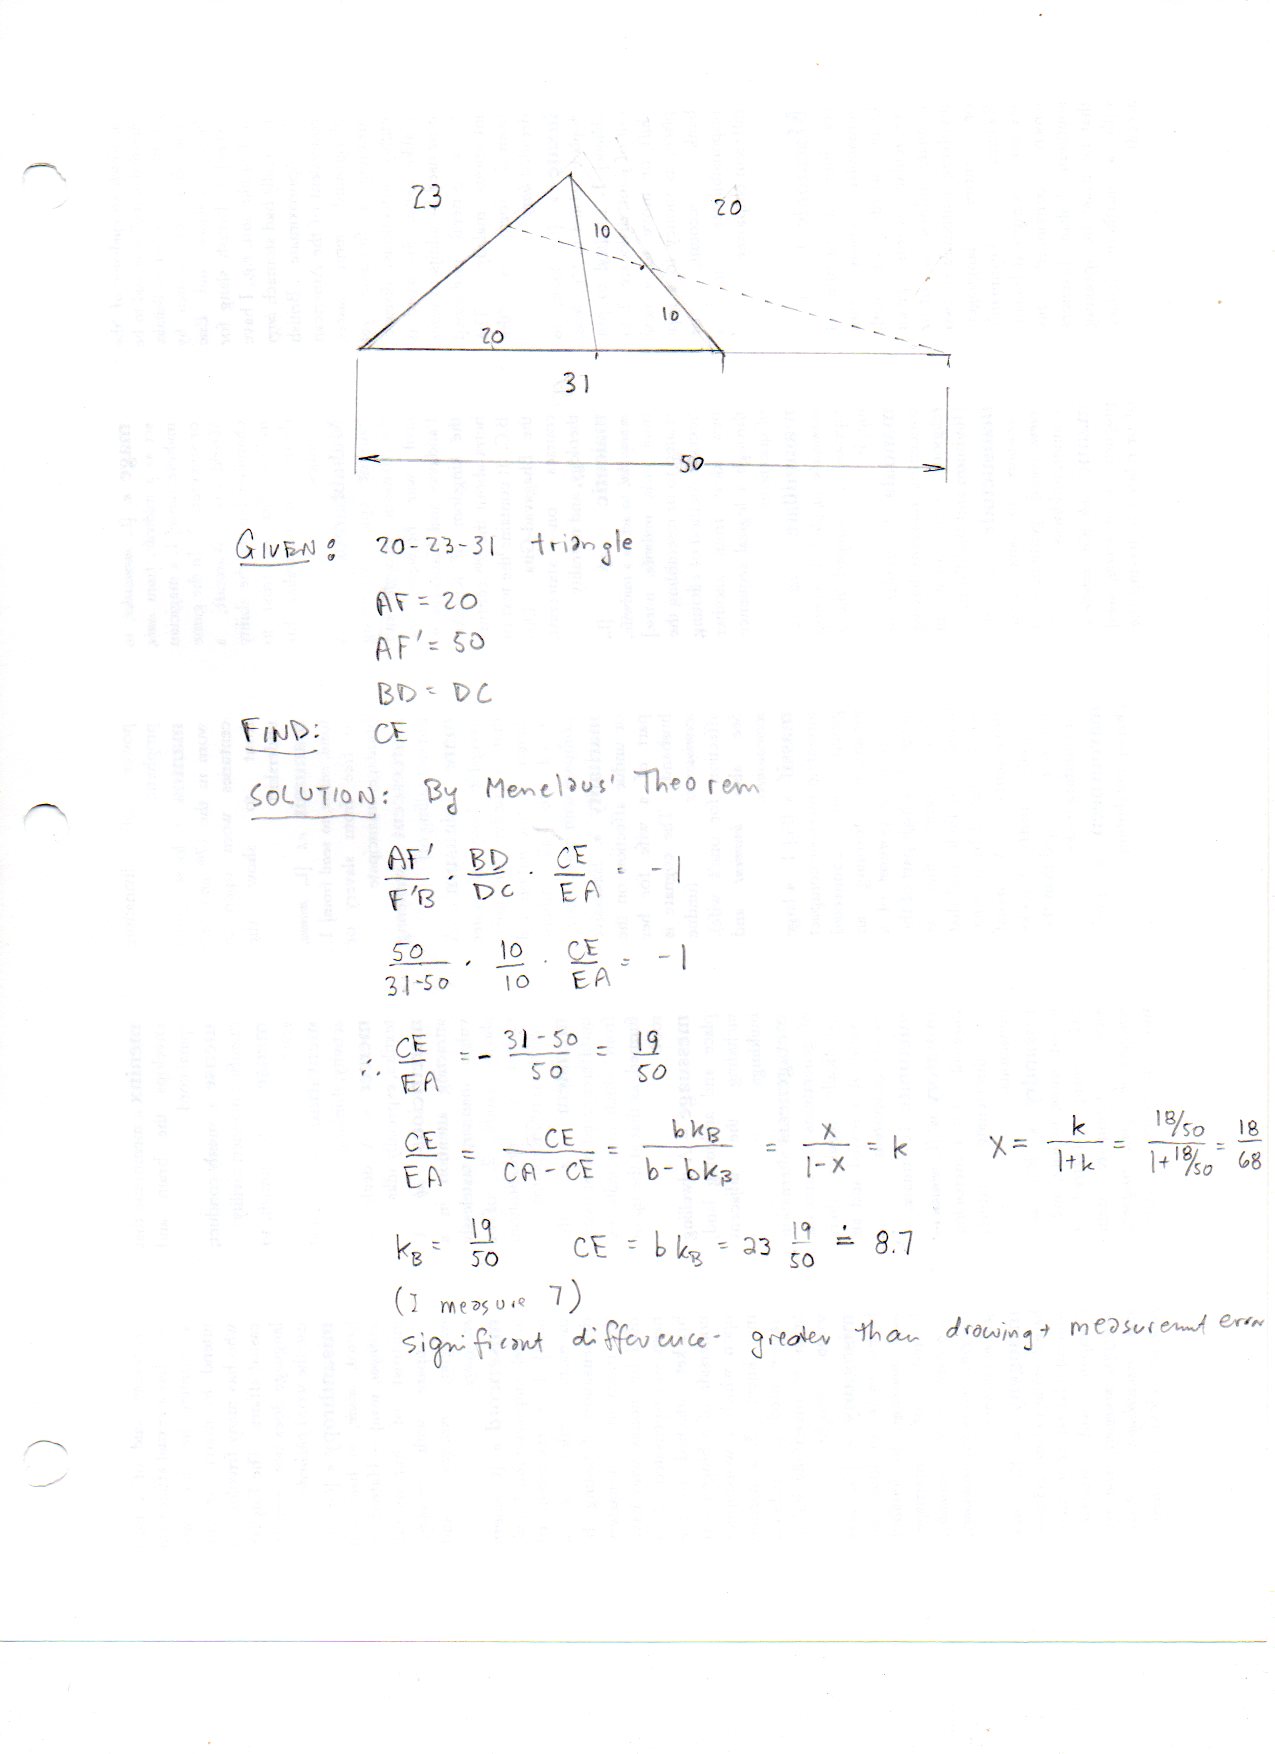 23
20
10
10
20
31
50
GIVEN: 20-23-31 triangle
AF = 20
AF' = 50
BD = DC
FIND: CE
SOLUTION: By Menelaus' Theorem
AF'/F'B · BD/DC · CE/EA = -1
50/31-50 · 10/10 · CE/EA = -1
∴ CE/EA = - 31-50/50 = 19/50
CE/EA = CE/CA-CE = bkB/b-bkB = x/1-x = k X = k/1+k = 18/50/1+18/50 = 18/68
kB = 19/50 CE = bkB = 23 19/50 ≐ 8.7
(I measure 7)
significant difference - greater than drawing + measuremnt error